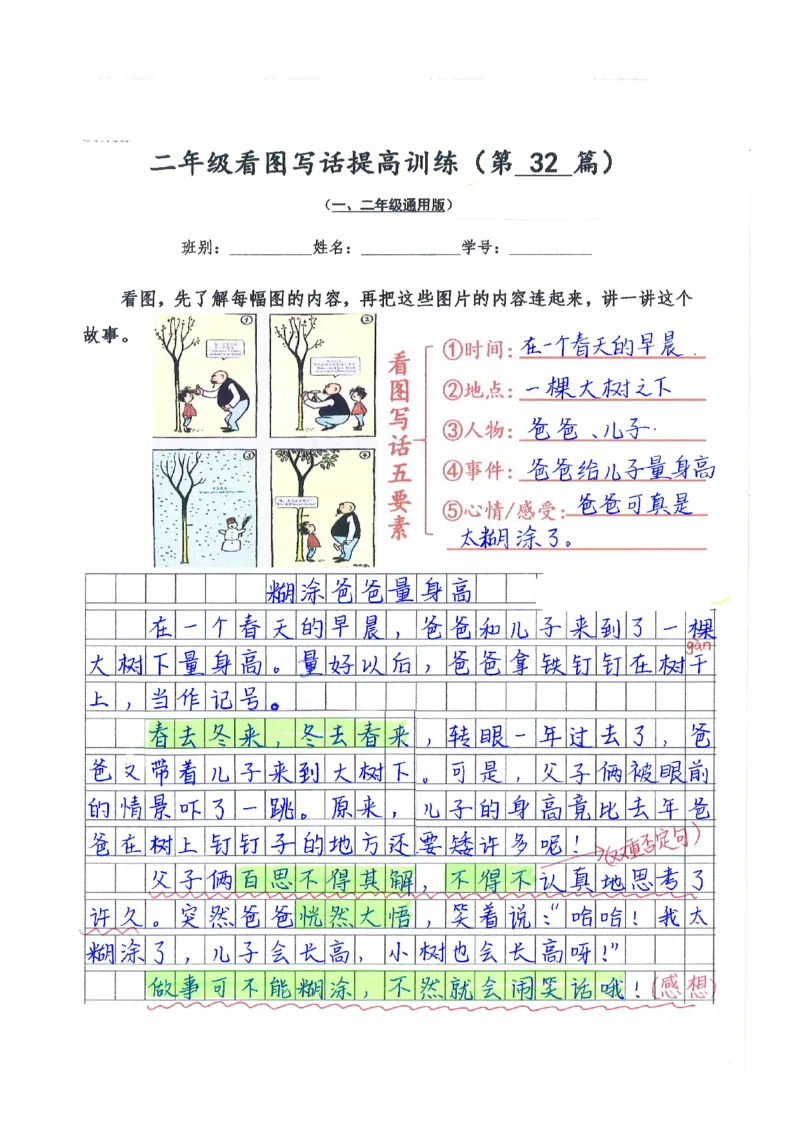 二年级看图写话提高训练（第 32 篇）
（一、二年级通用版）
班别：__________姓名：____________学号：__________
看图，先了解每幅图的内容，再把这些图片的内容连起来，讲一讲这个
故事。
①
②
③
④
看图写话五要素
①时间：在一个春天的早晨.
②地点：一棵大树之下
③人物：爸爸、儿子.
④事件：爸爸给儿子量身高
⑤心情/感受：爸爸可真是
太糊涂了。
糊涂爸爸量身高
在一个春天的早晨，爸爸和儿子来到了一棵
gàn
大树下量身高。量好以后，爸爸拿铁钉钉在树干
上，当作记号。
春去冬来，冬去春来，转眼一年过去了，爸
爸又带着儿子来到大树下。可是，父子俩被眼前
的情景吓了一跳。原来，儿子的身高竟比去年爸
爸在树上钉钉子的地方还要矮许多呢！
(双重否定句)
父子俩百思不得其解，不得不认真地思考了
许久。突然爸爸恍然大悟，笑着说：“哈哈！我太
糊涂了，儿子会长高，小树也会长高呀！”
做事可不能糊涂，不然就会闹笑话哦！(感想)